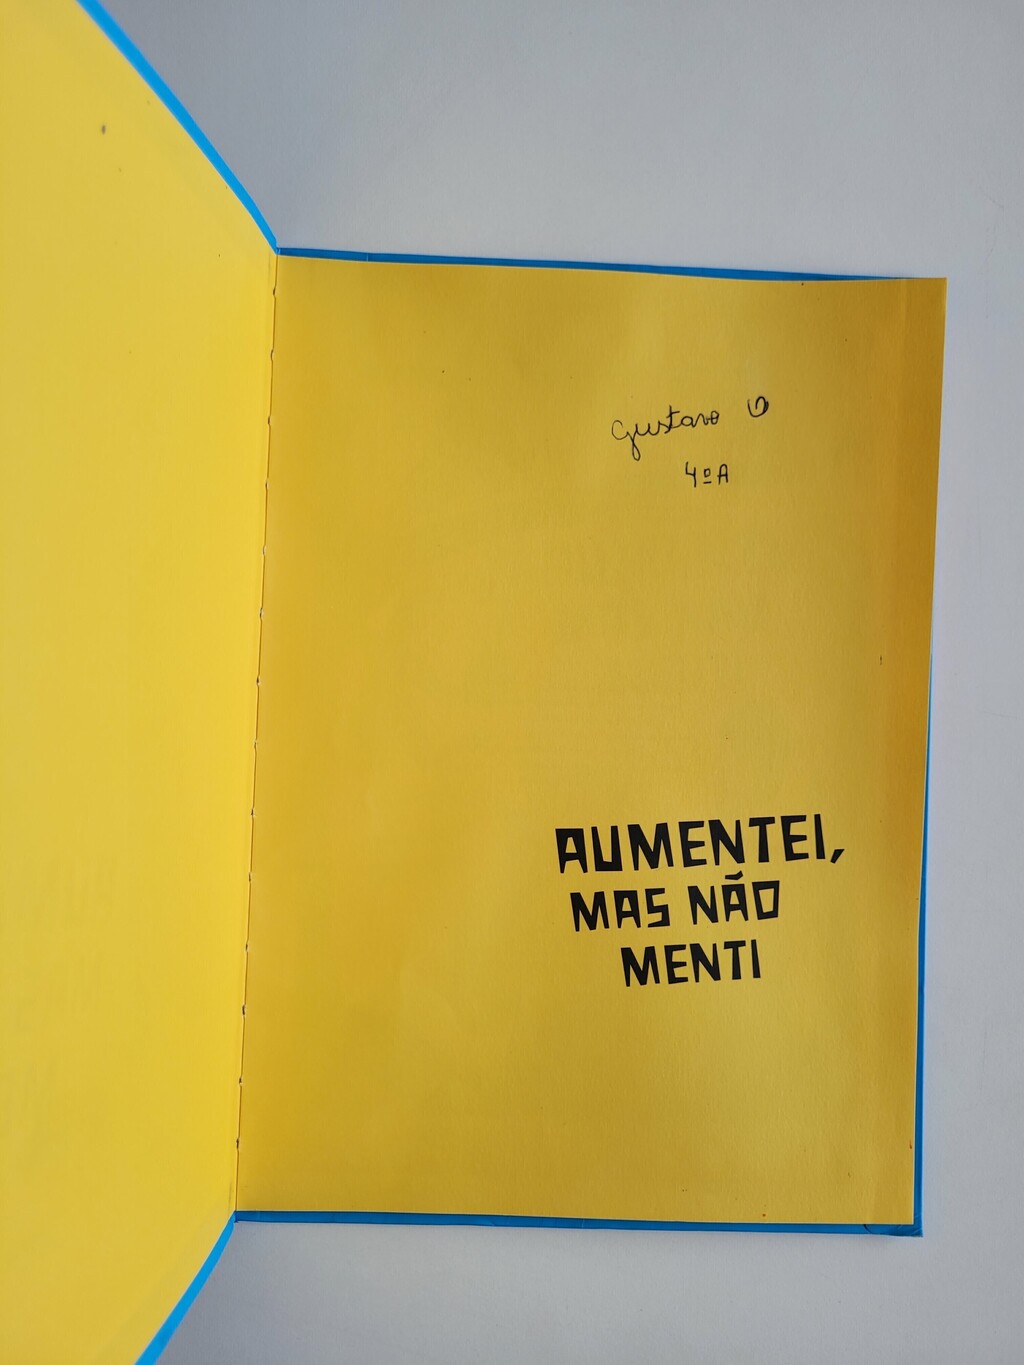 Gustavo G
4º A
AUMENTEI,
MAS NÃO
MENTI